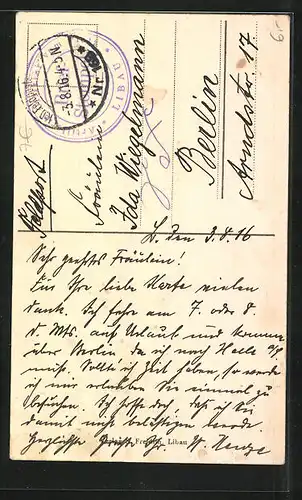 Feldpost
Fräulein
Ida Wiegelmann
Berlin
Arndtstr 17.
LIBAU
3.8.16
L. den 3.8.16
Sehr geehrtes Fräulein!
Für Ihre liebe Karte vielen
Dank. Ich fahre am 7. oder 8.
d. Mts. auf Urlaub und komme
über Berlin da ich nach Halle a/S
muß. Sollte ich Zeit haben, so werde
ich mir erlauben Sie einmal zu
besuchen. Ich hoffe doch, daß ich Sie
damit nicht belästigen werde.
Herzlichste Grüße Ihr W.
Libau